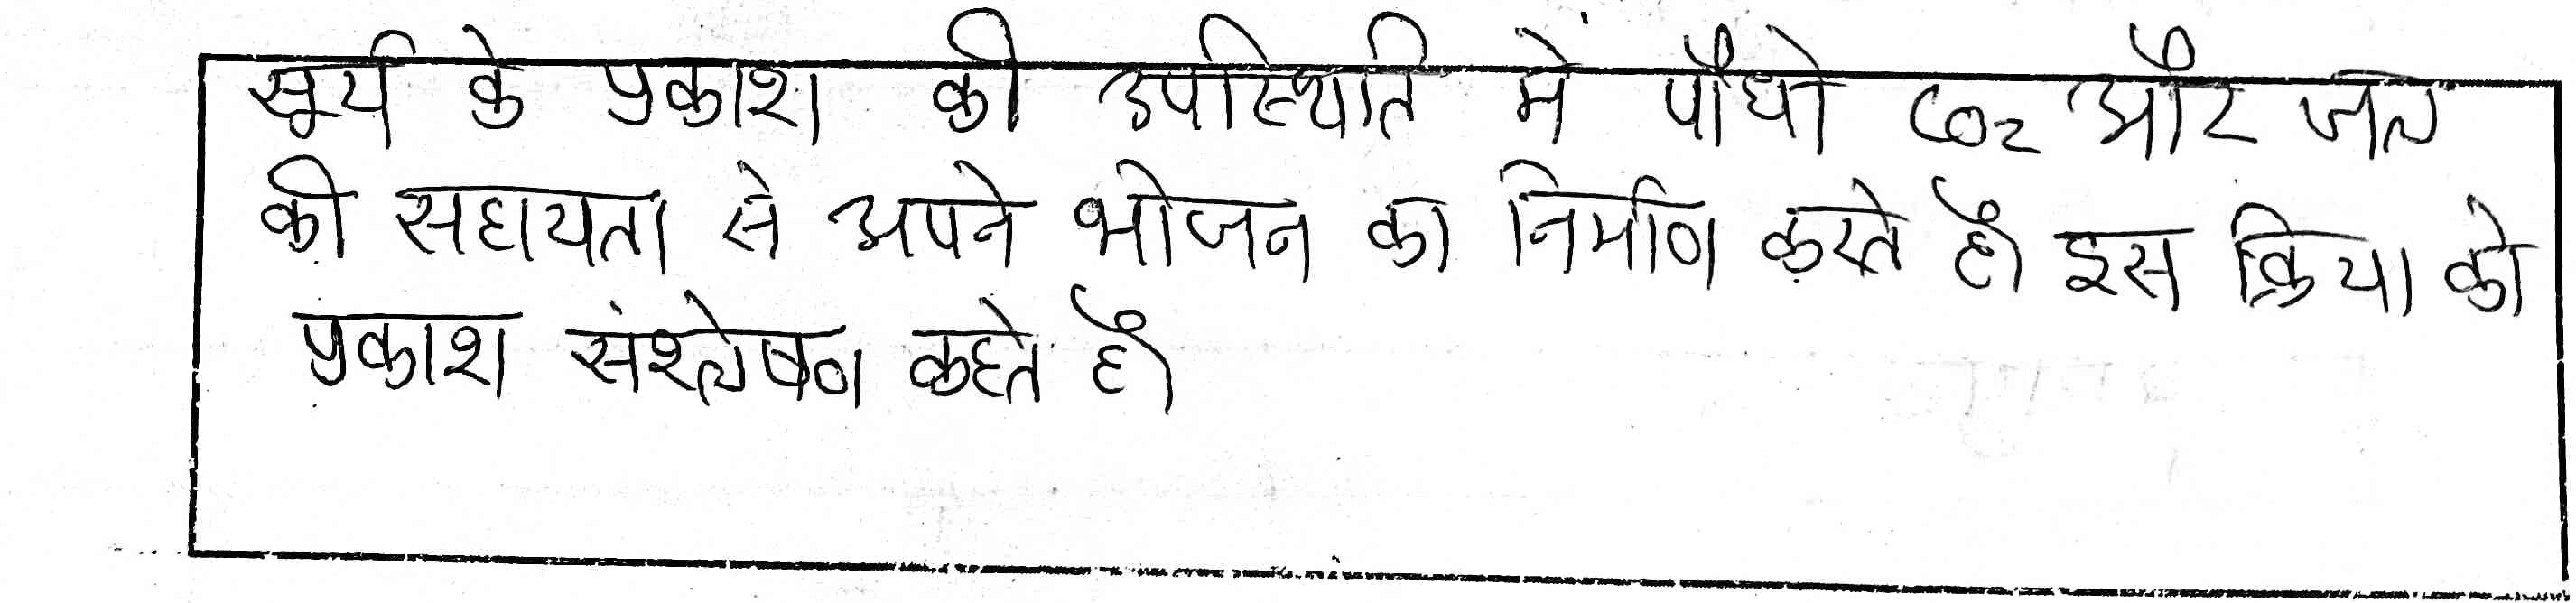 सूर्य के प्रकाश की उपस्थिति में पौधो CO₂ और जल
की सहायता से अपने भोजन का निर्माण करते है। इस क्रिया को
प्रकाश संश्लेषण कहते है।